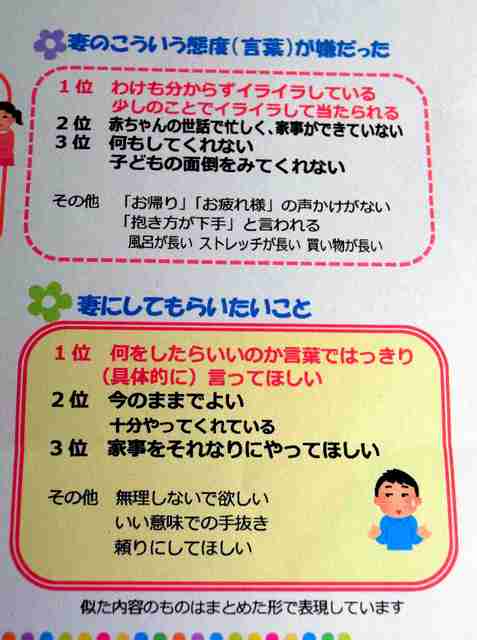 妻のこういう態度(言葉)が嫌だった
1位 わけも分からずイライラしている
少しのことでイライラして当たられる
2位 赤ちゃんの世話で忙しく、家事ができていない
3位 何もしてくれない
子どもの面倒をみてくれない
その他 「お帰り」「お疲れ様」の声かけがない
「抱き方が下手」と言われる
風呂が長い ストレッチが長い 買い物が長い
妻にしてもらいたいこと
1位 何をしたらいいのか言葉ではっきり
(具体的に)言ってほしい
2位 今のままでよい
十分やってくれている
3位 家事をそれなりにやってほしい
その他 無理しないで欲しい
いい意味での手抜き
頼りにしてほしい
似た内容のものはまとめた形で表現しています